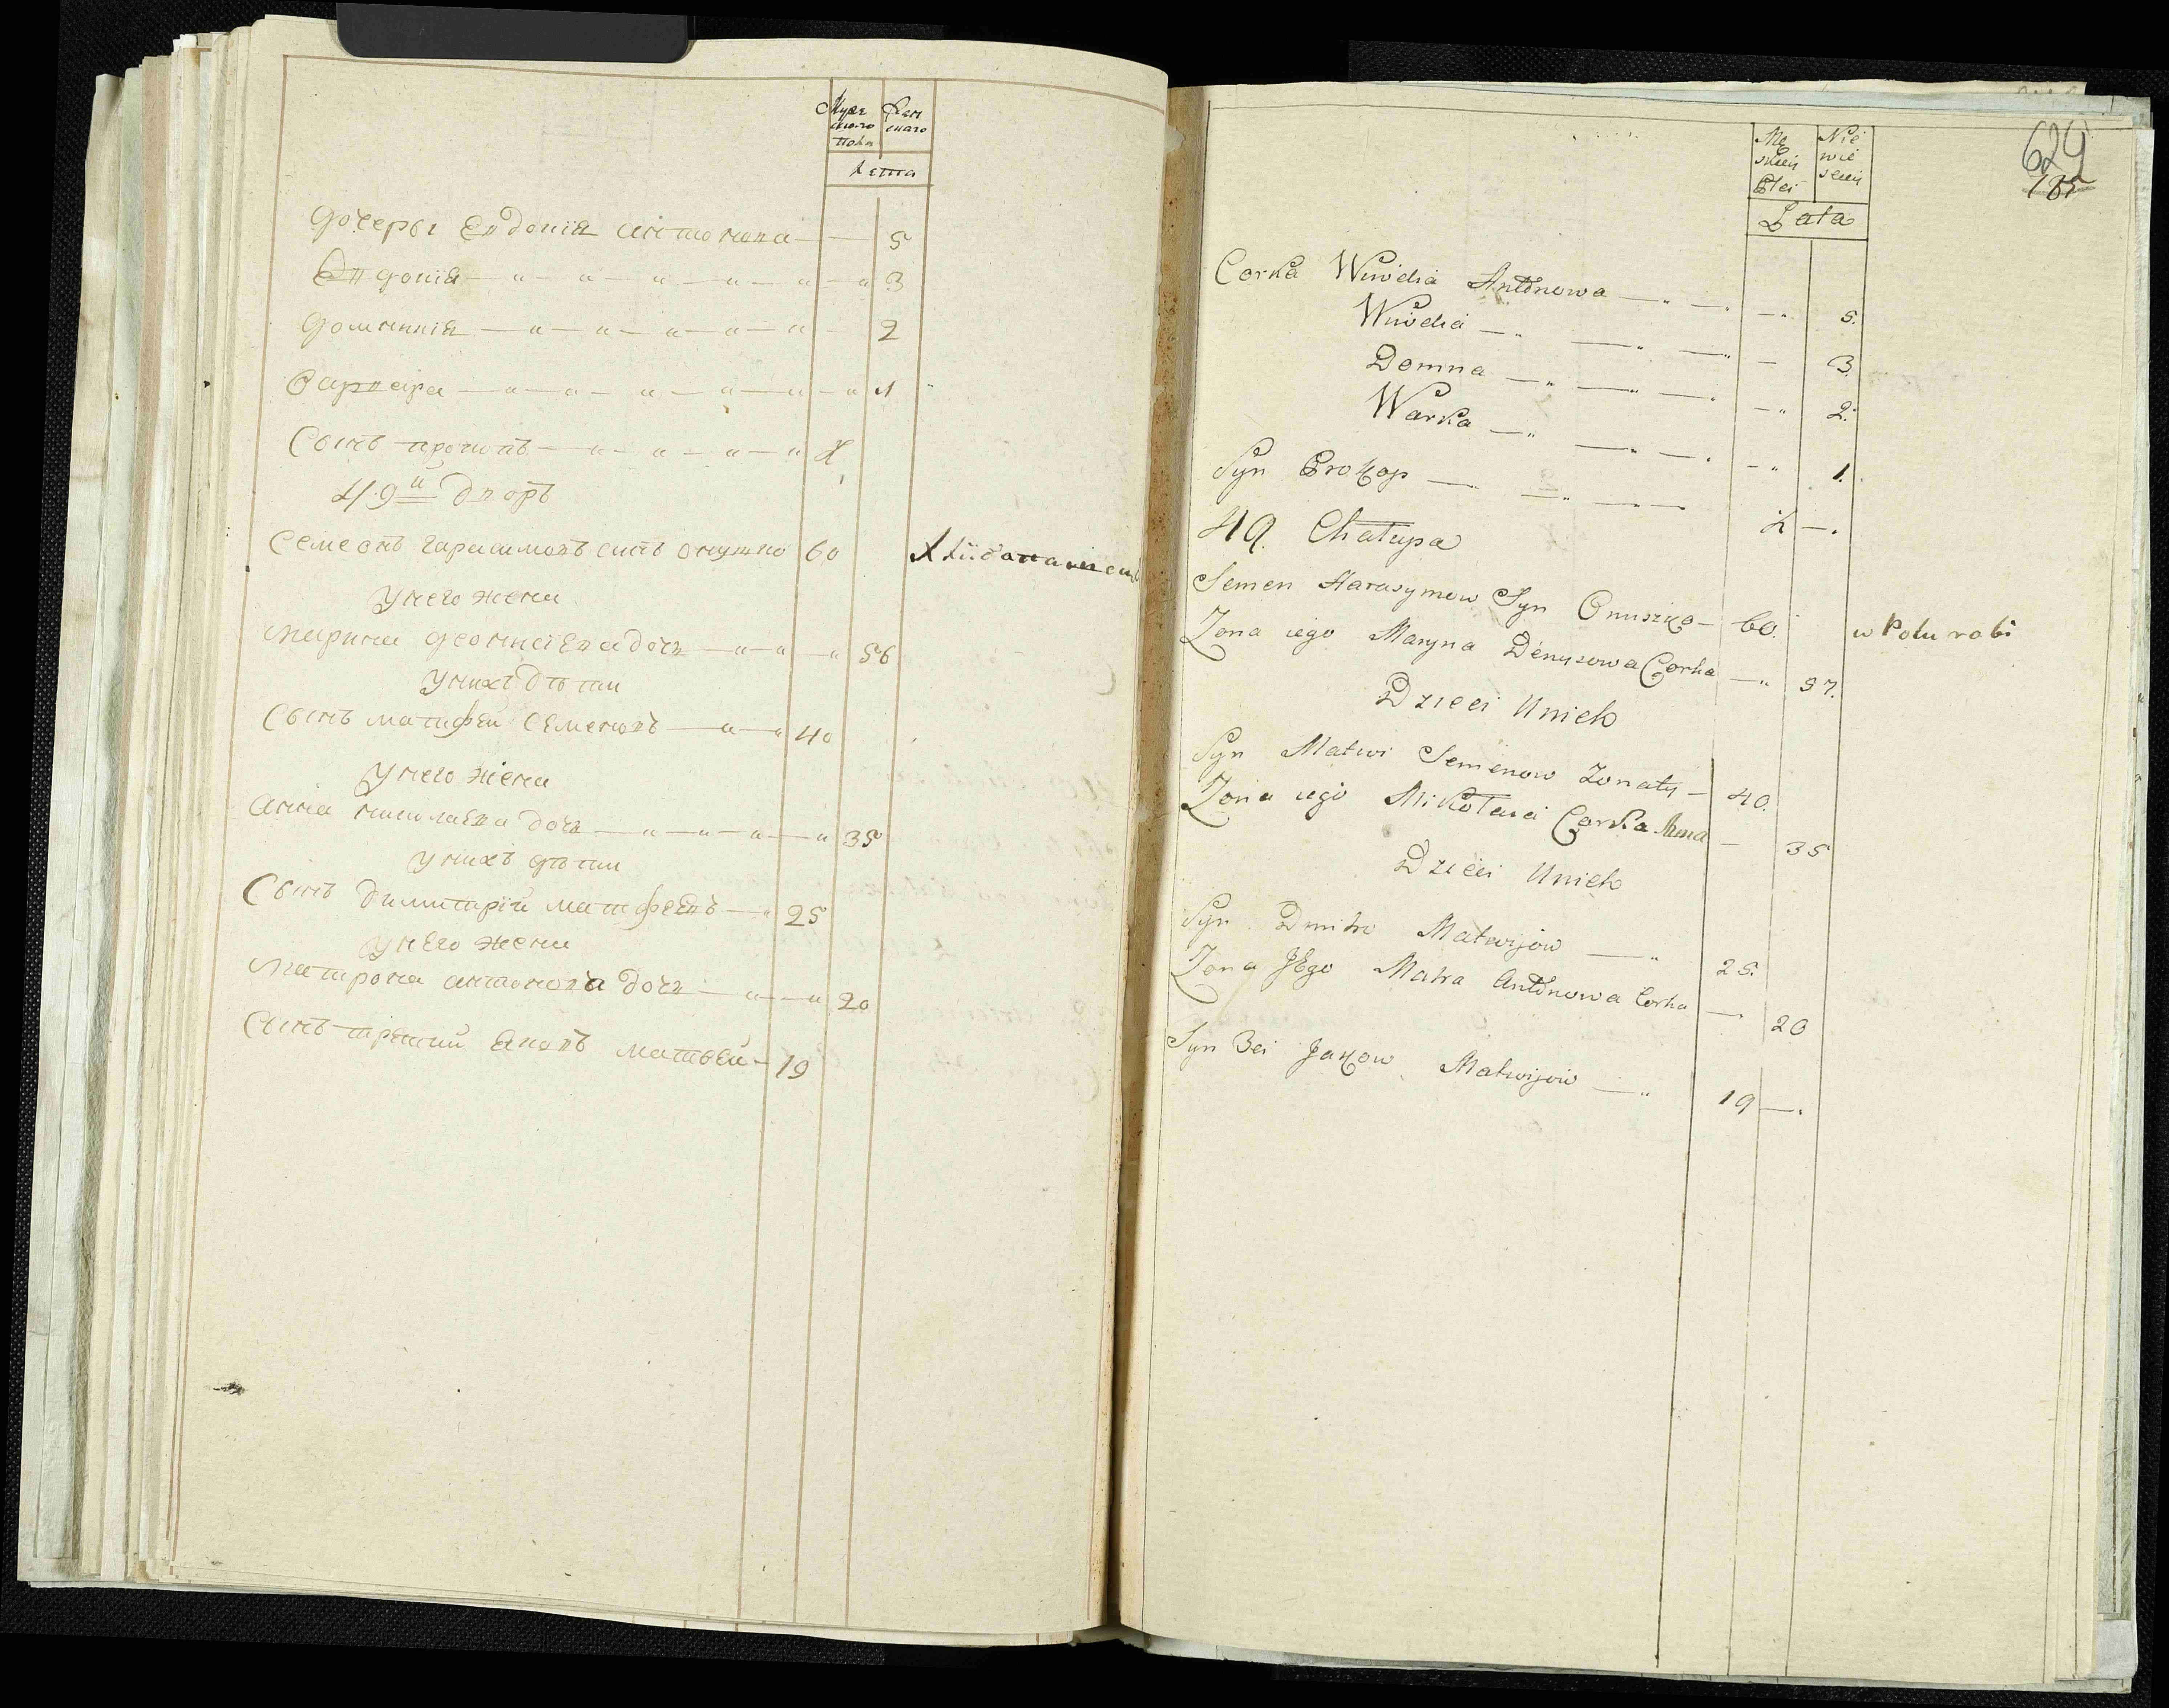 Муж Жен
скаго скаго
пола
Лета
Дочеры Евдокія антонова — 5
Евдокія — 3
Домникія — 2
Варвара — 1
Сынъ прокопъ — ½
49й Дворъ
Семеонъ гарасимовъ синъ онушко 60
У него жена
марина деонисіева дочь — 56
У нихъ дѣти
Сынъ матфей Семеновъ — 40
У него жена
анна николаева дочь — 35
У нихъ дѣти
Сынъ димитрій матфеевъ — 25
У него жена
матрона антонова дочь — 20
Сынъ третий Яковъ матвей — 19
629
185
Mę Nie
skiej wie
Płci sciej
Lata
Corka Wiwdia Antonowa — 5.
Wiwdia — 3.
Domna — 2.
Warka — 1.
Syn Prokop — ½ —
49. Chałupa
Semen Harasymow Syn Onuszko — 60. w Polu robi
Zona iego Maryna Denysowa Corka — 57.
Dzieci Unich
Syn Matwi Semenow Zonaty — 40.
Zona iego Mikołaia Corka Anna — 35
Dzieci Unich
Syn Dmitro Matwijow — 25.
Zona Jego Matra Antonowa Corka — 20
Syn 3ci Jakow Matwijow — 19 —